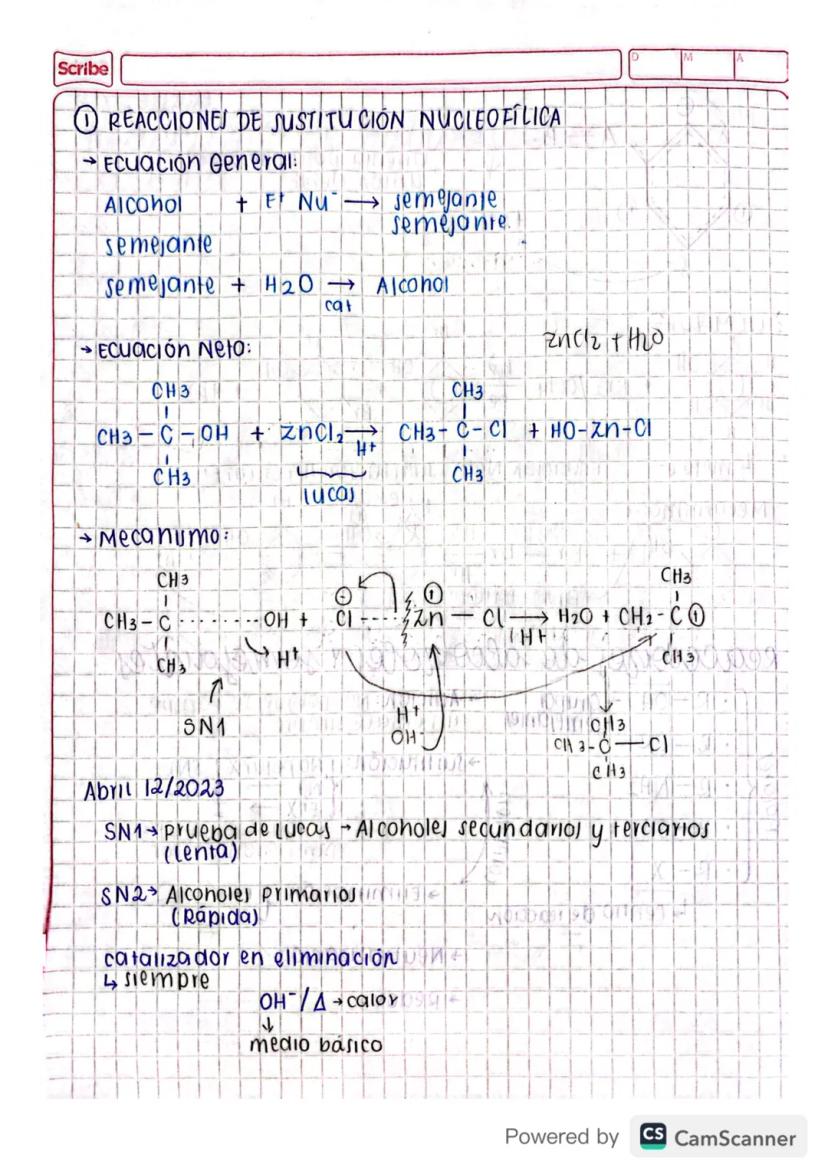 Scribe
D M A
① REACCIONES DE SUSTITUCIÓN NUCLEOFÍLICA
→ Ecuación General:
Alcohol + E+ Nu⁻ → semejante
semejante
semejante
semejante + H2O → Alcohol
cat
ZnCl2 + H2O
→ Ecuación Neto:
CH3 CH3
CH3 - C - OH + ZnCl2 → CH3 - C - Cl + HO-Zn-Cl
H+
CH3 CH3
lucas
→ Mecanismo:
CH3 CH3
CH3 - C ········· OH + Cl ---- Zn — Cl → H2O + CH2 - C ⊕
H+
CH3 H+ CH3
SN1
H+
OH⁻
CH3
CH3 - C — Cl
CH3
Abril 12/2023
SN1 → prueba de lucas → Alcoholes secundarios y terciarios
(Lenta)
SN2 → Alcoholes primarios
(Rápida)
catalizador en eliminación
↳ siempre
OH⁻/Δ → calor
↓
medio básico
Powered by CS CamScanner